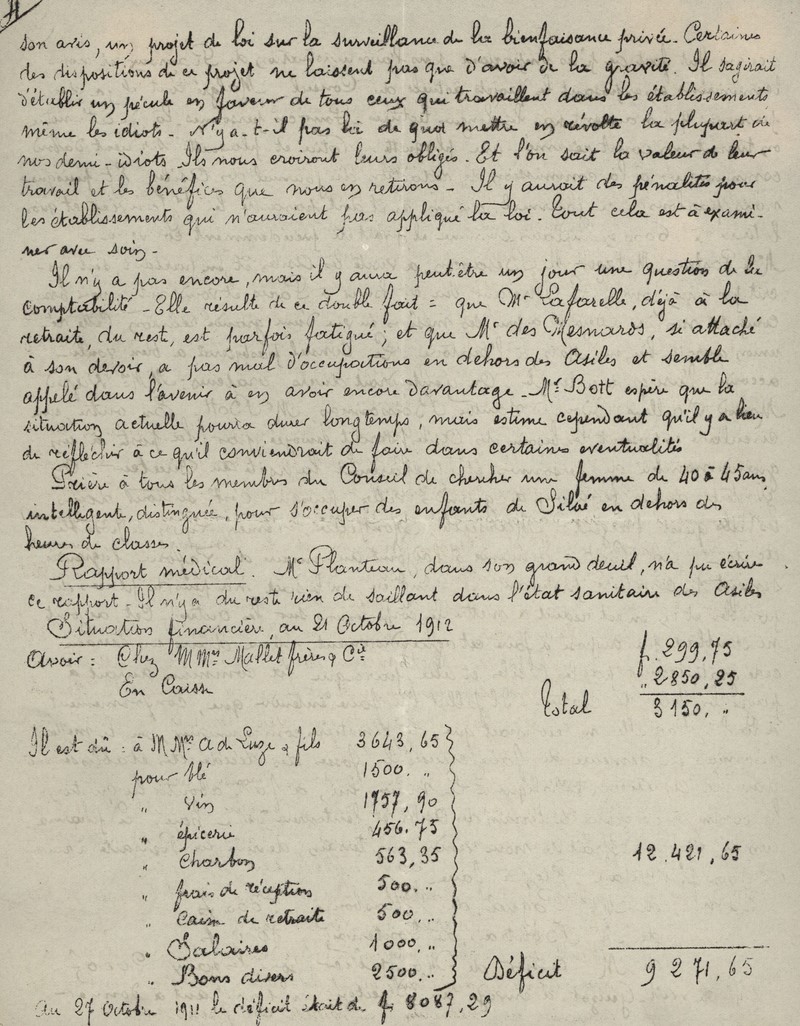 son avis, un projet de loi sur la surveillance de la bienfaisance privée. Certaines
des dispositions de ce projet ne laissent pas que d'avoir de la gravité. Il s'agirait
d'établir un pécule en faveur de tous ceux qui travaillent dans les établissements
même les idiots. N'y a-t-il pas là de quoi mettre en révolte la plupart de
nos demi-idiots Ils nous croiront leurs obligés. Et l'on sait la valeur de leur
travail et les bénéfices que nous en retirons. Il y aurait des pénalités pour
les établissements qui n'auraient pas appliqué la loi. Tout cela est à exami-
ner avec soin.
Il n'y a pas encore, mais il y aura peut-être un jour une question de la
comptabilité. Elle résulte de ce double fait = que Mr Lafarelle, déjà à la
retraite, du reste, est parfois fatigué; et que Mr des Mesnards, si attaché
à son devoir, a pas mal d'occupations en dehors des Asiles et semble
appelé dans l'avenir à en avoir encore davantage. Mr Bott espère que la
situation actuelle pourra durer longtemps, mais estime cependant qu'il y a lieu
de réfléchir à ce qu'il conviendrait de faire dans certaines eventualités
Prière à tous les membres du Conseil de chercher une femme de 40 à 45 ans,
intelligente, distinguée, pour s'occuper des enfants de Siloé en dehors des
heures de classes.
Rapport médical. Mr Planteau, dans son grand deuil, n'a pu écrire
ce rapport. Il n'y a du reste rien de saillant dans l'état sanitaire des Asiles
Situation financière, au 21 Octobre 1912
Avoir : Chez MMrs Mallet frères & Cie f. 299,75
En Caisse " 2850,25
Total 3150, "
Il est dû : à MMrs A de Luze & fils 3643,65
pour blé 1500. "
" vin 1757,90
" épicerie 456.75
" Charbon 563,35 12.421,65
" frais de réception 500. "
" Caisse de retraite 500. "
" Salaires 1000. "
" Bons divers 2500. " Déficit 9271,65
Au 27 Octobre 1911 le déficit était de f 8087,29